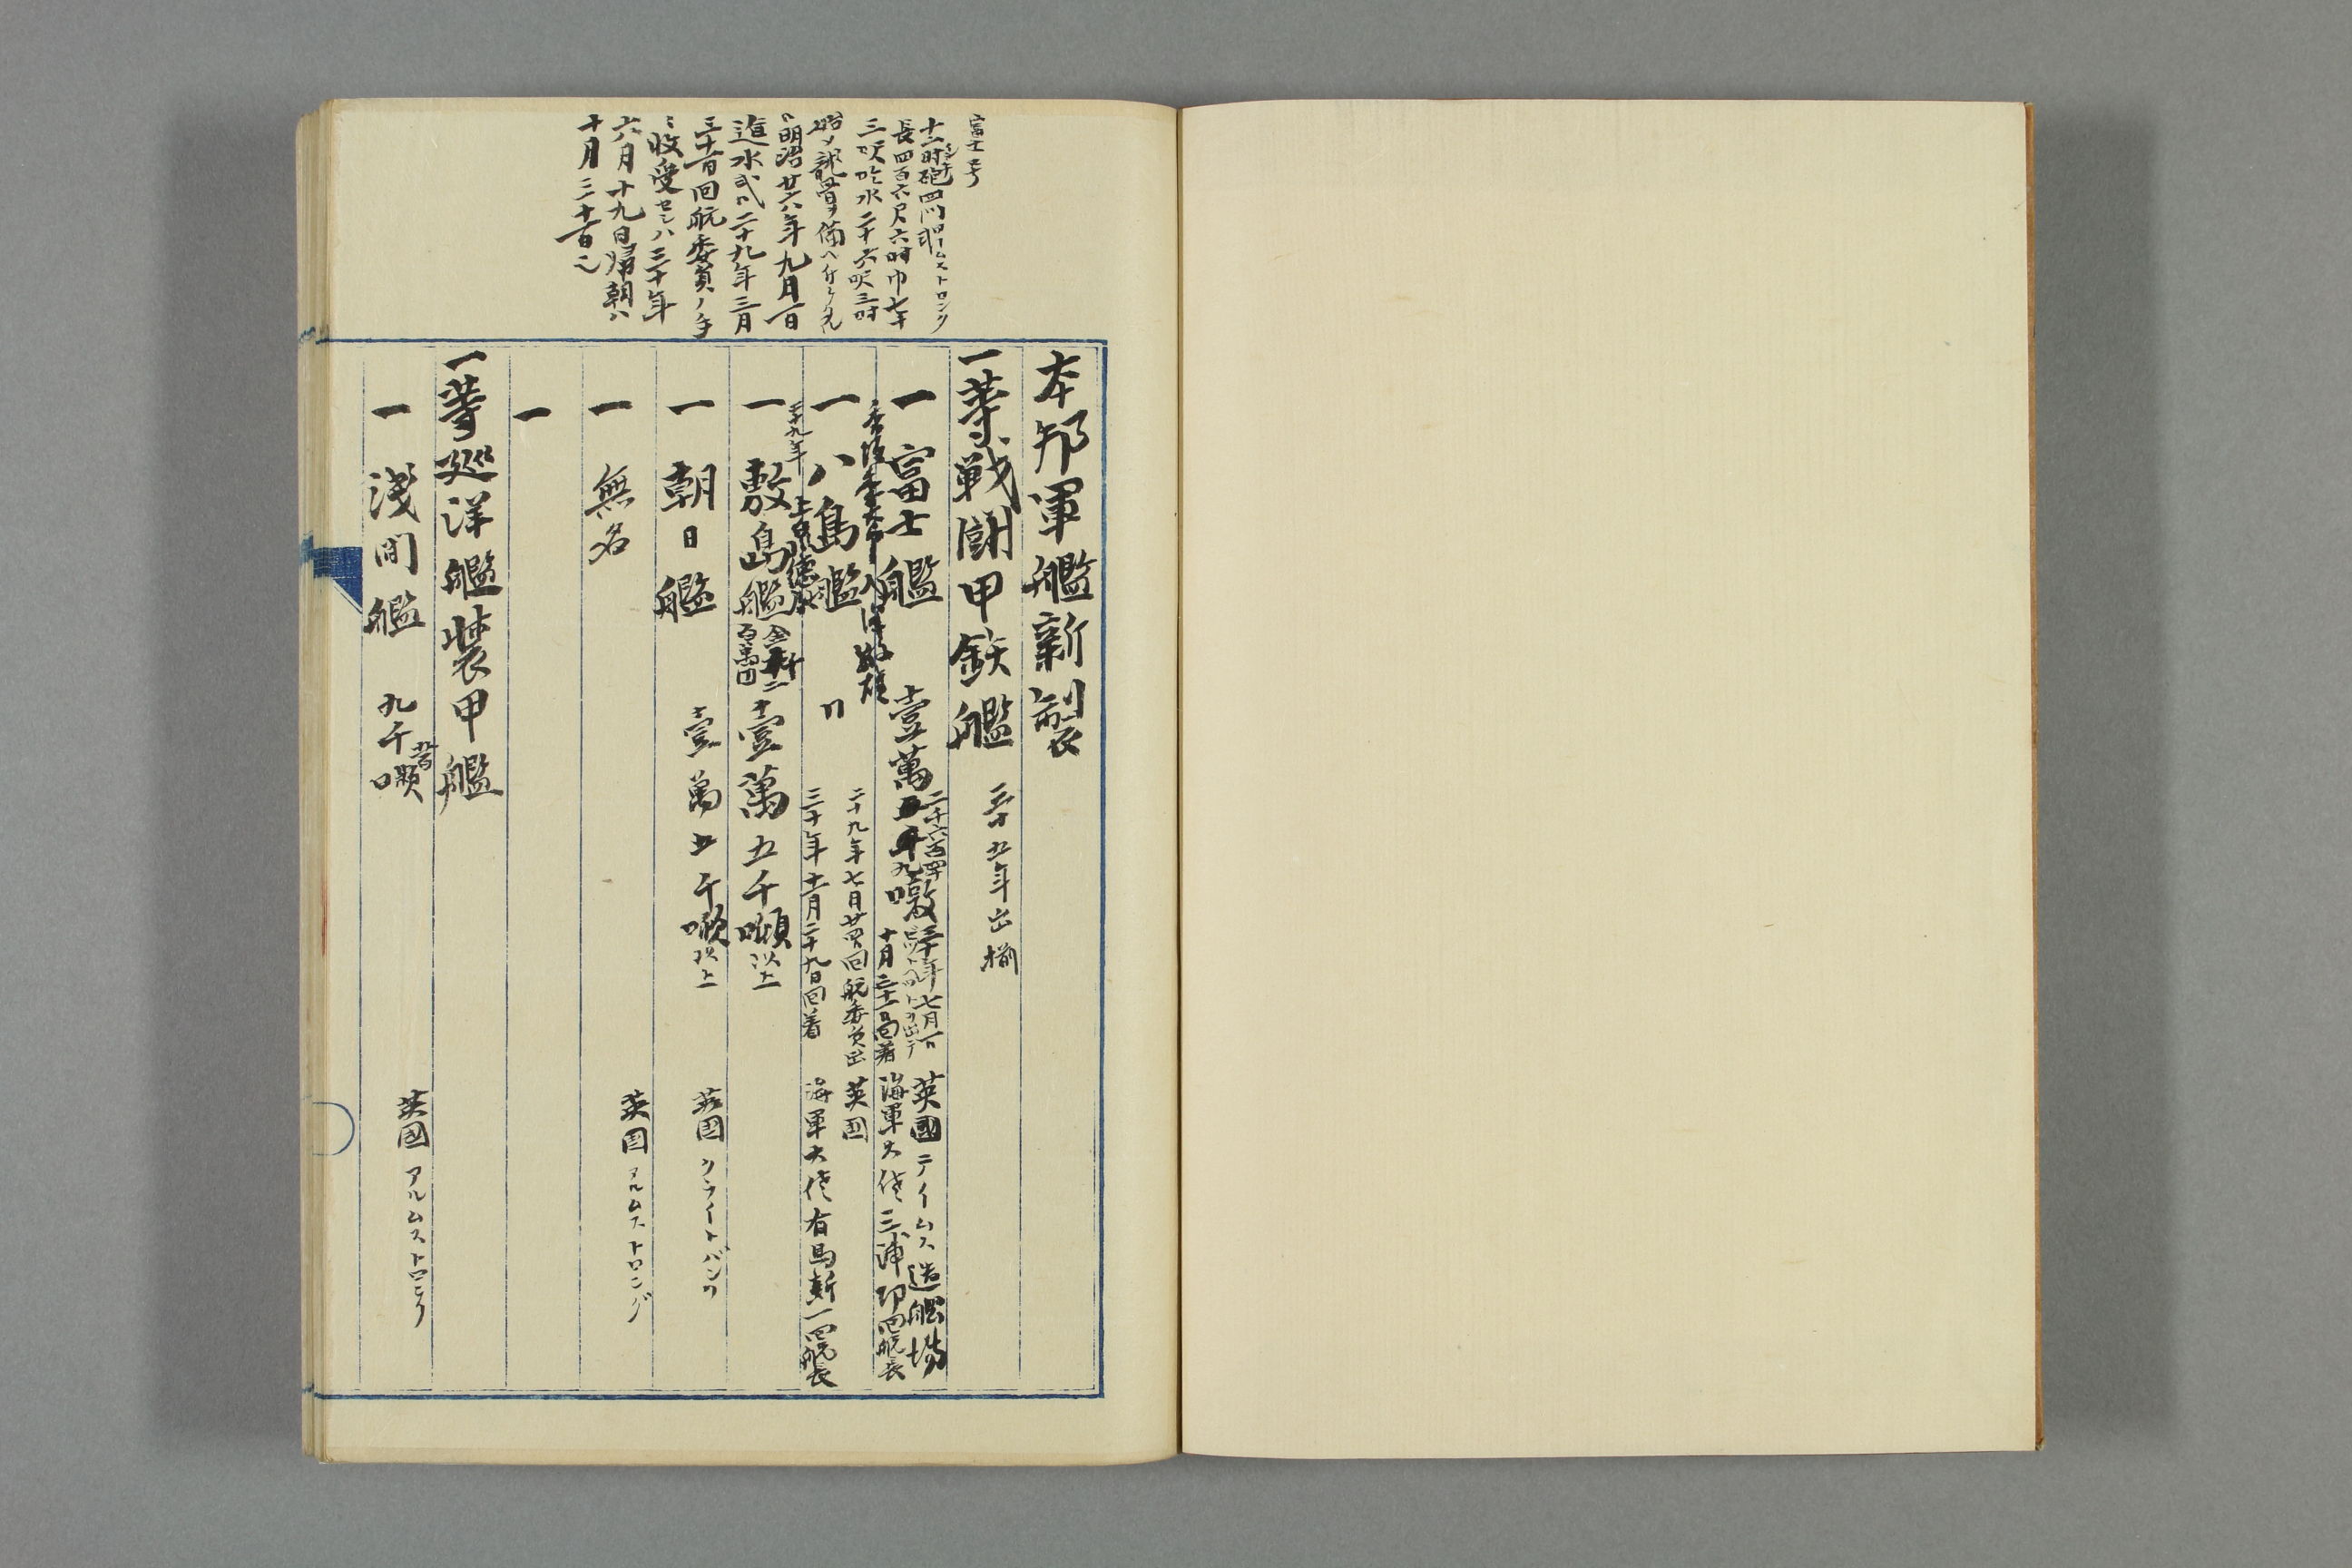 富士号
十二吋砲四門アームストロング
長四百六尺六吋巾七十
三呎吃水二十六呎三吋
始メ龍骨ヲ備ヘ付ケタル
ハ明治廿六年九月一日
進水式ハ二十九年三月
三十一日回航委員ノ手
ニ收受セシハ三十年
六八月十九日帰朝ハ
十月三十一日ニ
本邦軍艦新製
一等戦闘甲鉄艦 三十五年出揃
一 富士艦 壹萬二千六百四十九噸 三十年七月 十月三十一日回着 英國テイムス造船場 海軍大佐三浦功回航長
一 八島艦 〃 二十九年七月廿四日回航委員出 三十年十一月二十九日回着 英国 海軍大佐有馬新一回航長
一 敷島艦 壹萬五千噸以上
一 朝日艦 壹萬五千噸以上 英国クライトバンク
一 無名 英国アルムストロング
一
一等巡洋艦装甲艦
一 浅間艦 九千噸 英国アルムストロング